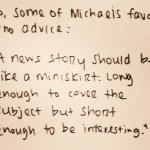 o, some of Michael's favo
no advice:
A news story should b
like a miniskirt. Long
enough to cover the
subject but short
enough to be interesting."